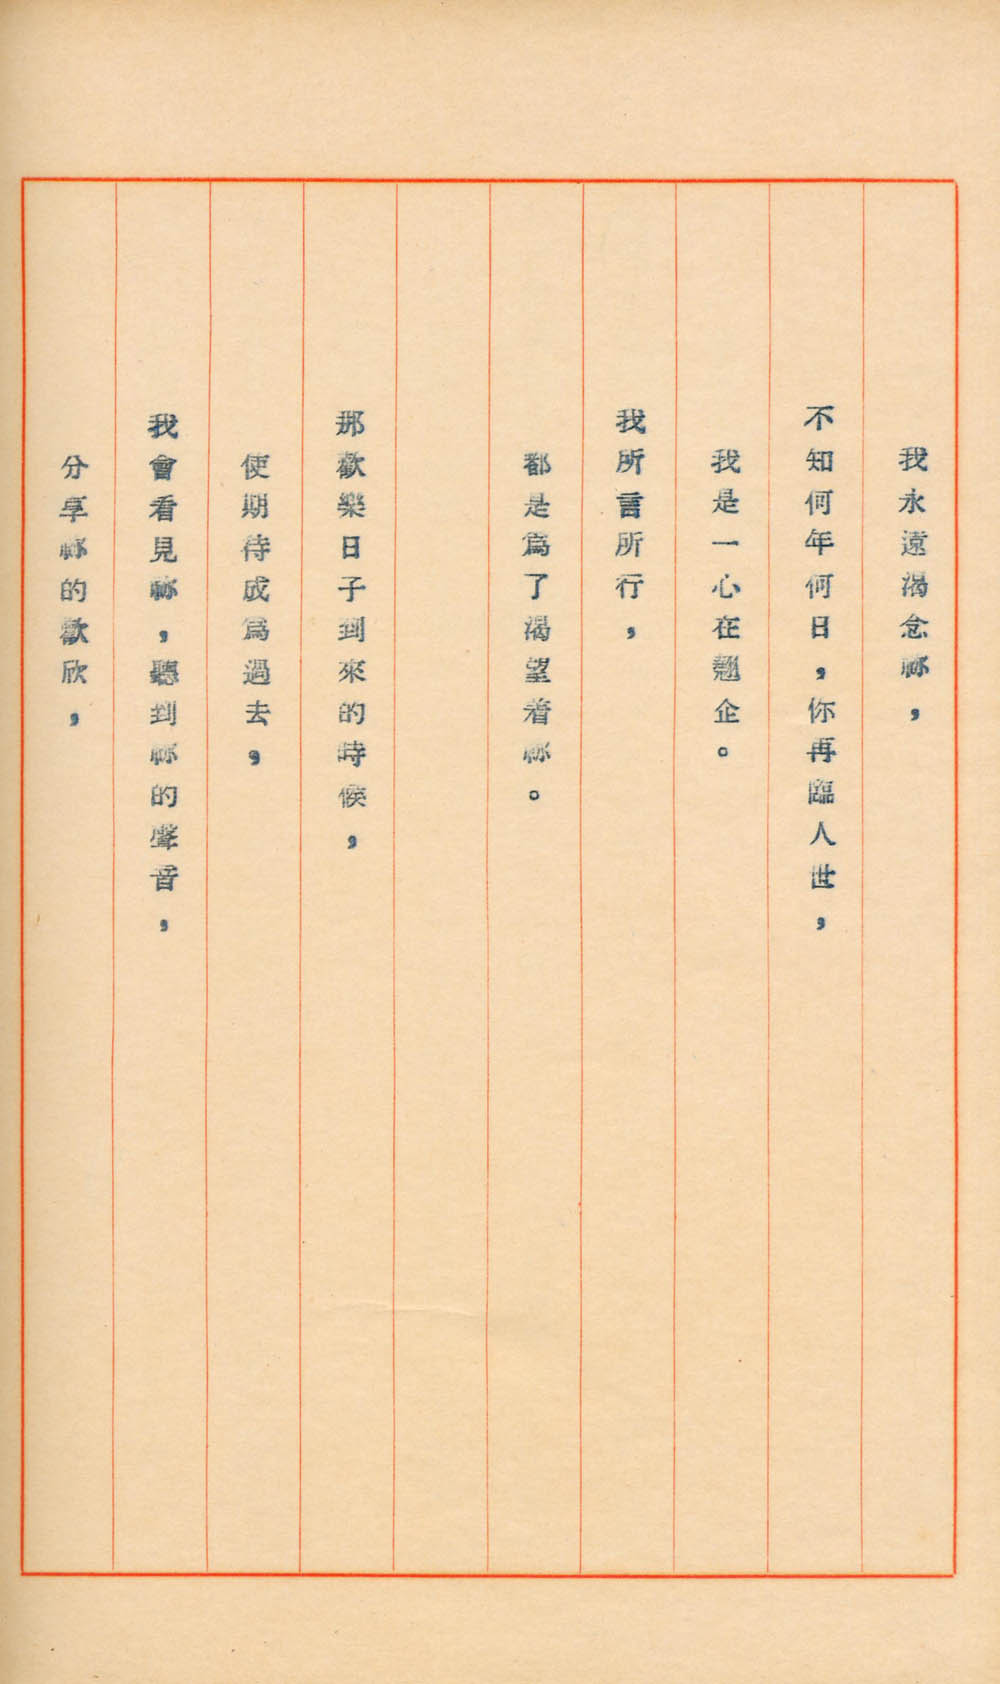 我永遠渴念祢，
不知何年何日，你再臨人世，
我是一心在翹企。
我所言所行，
都是爲了渴望着祢。
那歡樂日子到來的時候，
使期待成爲過去，
我會看見祢，聽到祢的聲音，
分享祢的歡欣，